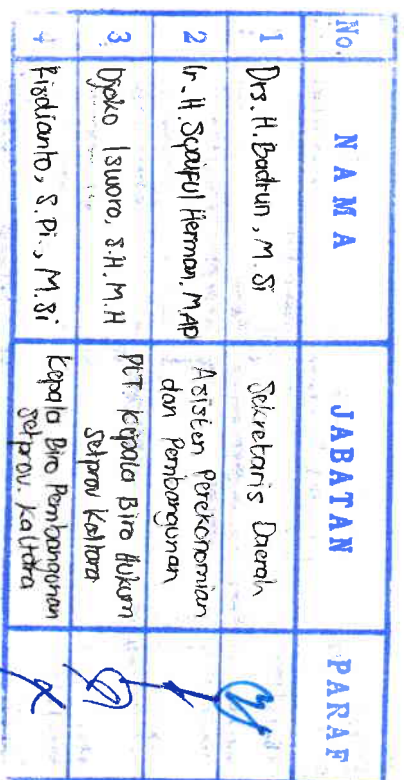 No. NAMA JABATAN PARAF
1 Drs. H. Badrun, M.Si Sekretaris Daerah
2 Ir. H. Syaiful Herman, MAP Asisten Perekonomian
dan Pembangunan
3 Djoko Isworo, S.H, M.H PLT. Kepala Biro Hukum
Setprov Kaltara
4 Risdianto, S.Pi., M.Si Kepala Biro Pembangunan
Setprov. Kaltara